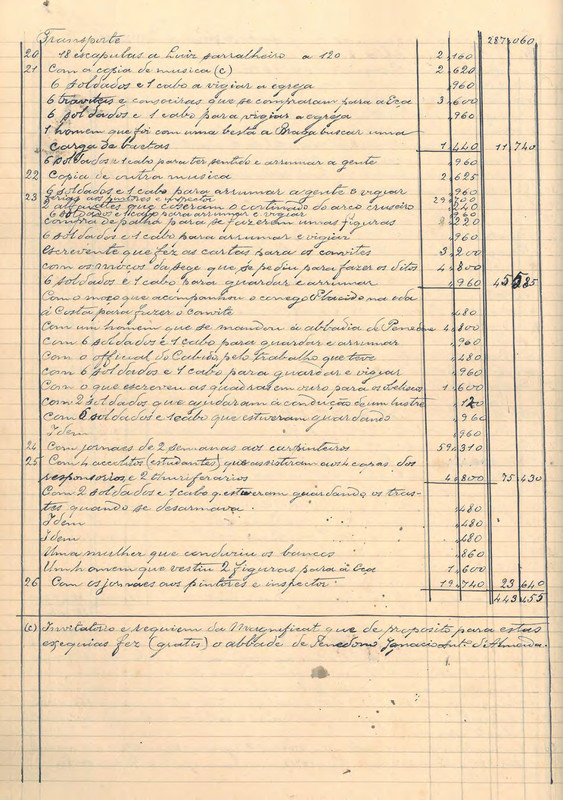 Transporte 287,060
20 18 escapulas a Luiz sarralheiro a 120 2,160
21 Com a copia de musica (c) 2,620
6 soldados e 1 cabo a vigiar a egreja ,960
6 travites e que se compraram para a Eça 3,600
6 soldados e 1 cabo para vigiar a egreja ,960
1 homem que foi com uma besta a Braga buscar uma
carga de 1,440 11,740
6 soldados e 1 cabo para ter sentido e arrumar a gente ,960
22 Copia de outra musica 2,625
6 soldados e 1 cabo para arrumar a gente e vigiar ,960
23 aos pintores e inspector
2 alfaiates que cozeram o cortinado do arco cruzeiro ,240
6 soldados e 1 cabo para arrumar e vigiar ,960
compra de palha para se fazerem umas figuras ,220
6 soldados e 1 cabo para arrumar e vigiar ,960
escrevente que fez as cartas para os convites 3,200
com os moços da sege que se pediu para fazer os ditos 4,800
6 soldados e 1 cabo para guardar e arrumar ,960 45,585
Com o moço que acompanhou o conego Placido na ida
á Costa para fazer o convite ,480
Com um homem que se mandou á abbadia de Penedono 4,800
Com 6 soldados e 1 cabo para guardar e arrumar ,960
Com o official do Cabido, pelo trabalho que teve ,480
Com 6 soldados e 1 cabo para guardar e vigiar ,960
Com o que escreveu as quadras em ouro para os 1,600
Com 2 soldados que ajudaram á condução de um lustre 120
Com 6 soldados e 1 cabo que estiveram guardando ,960
Idem ,960
24 Com jornaes de 2 semanas aos carpinteiros 59,310
25 Com 4 acolitos (estudantes) que assistiram aos 4 caras dos
responsorios, e 2 thuriferarios 4,800 75,430
Com 2 soldados e 1 cabo q. estiveram guardando os tras-
tes quando se desarmava ,480
Idem ,480
Idem ,480
Uma mulher que conduziu os bancos ,860
Um homem que vestiu 2 figuras para a Eça 1,600
26 Com os jornaes aos pintores e inspector 19,740 23,640
443,455
(c) Invitatorio e requiem da Magnificat que de proposito para estas
exequias fez (gratis) o abbade de Penedono Ignacio Ant.º d'Almeida.